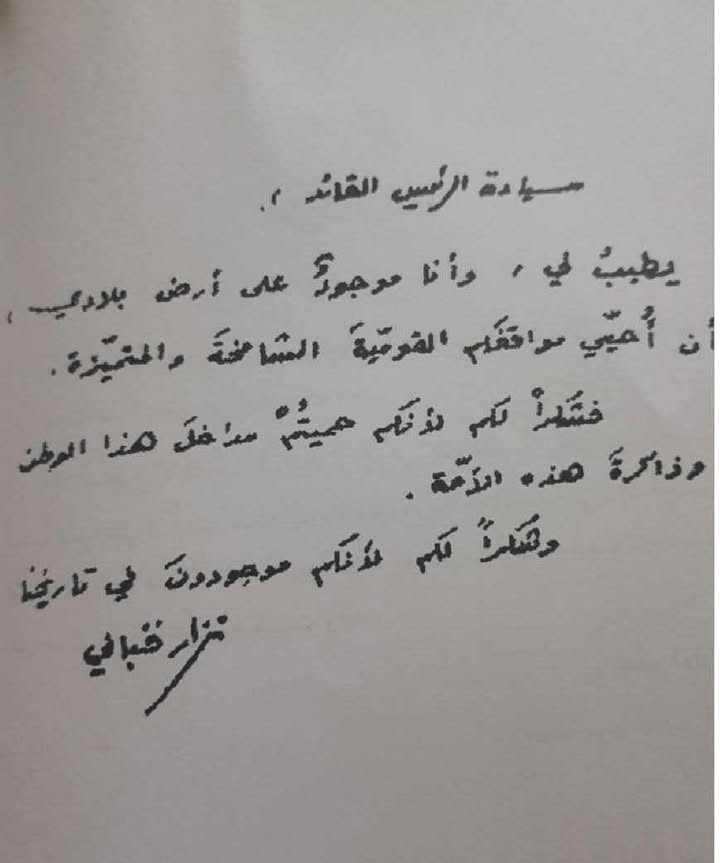 سيادة الرئيس القائد ،
يطيبُ لي ، وأنا موجودٌ على أرض بلادي ،
أن أُحيّي مواقفَكم القوميّةَ الشامخةَ والمتميّزة .
فشكراً لكم لأنكم حميتُمْ مداخلَ هذا الوطن
وذاكرةَ هذه الأمّة .
وشكراً لكم لأنكم موجودونَ في تاريخنا
نزار قباني